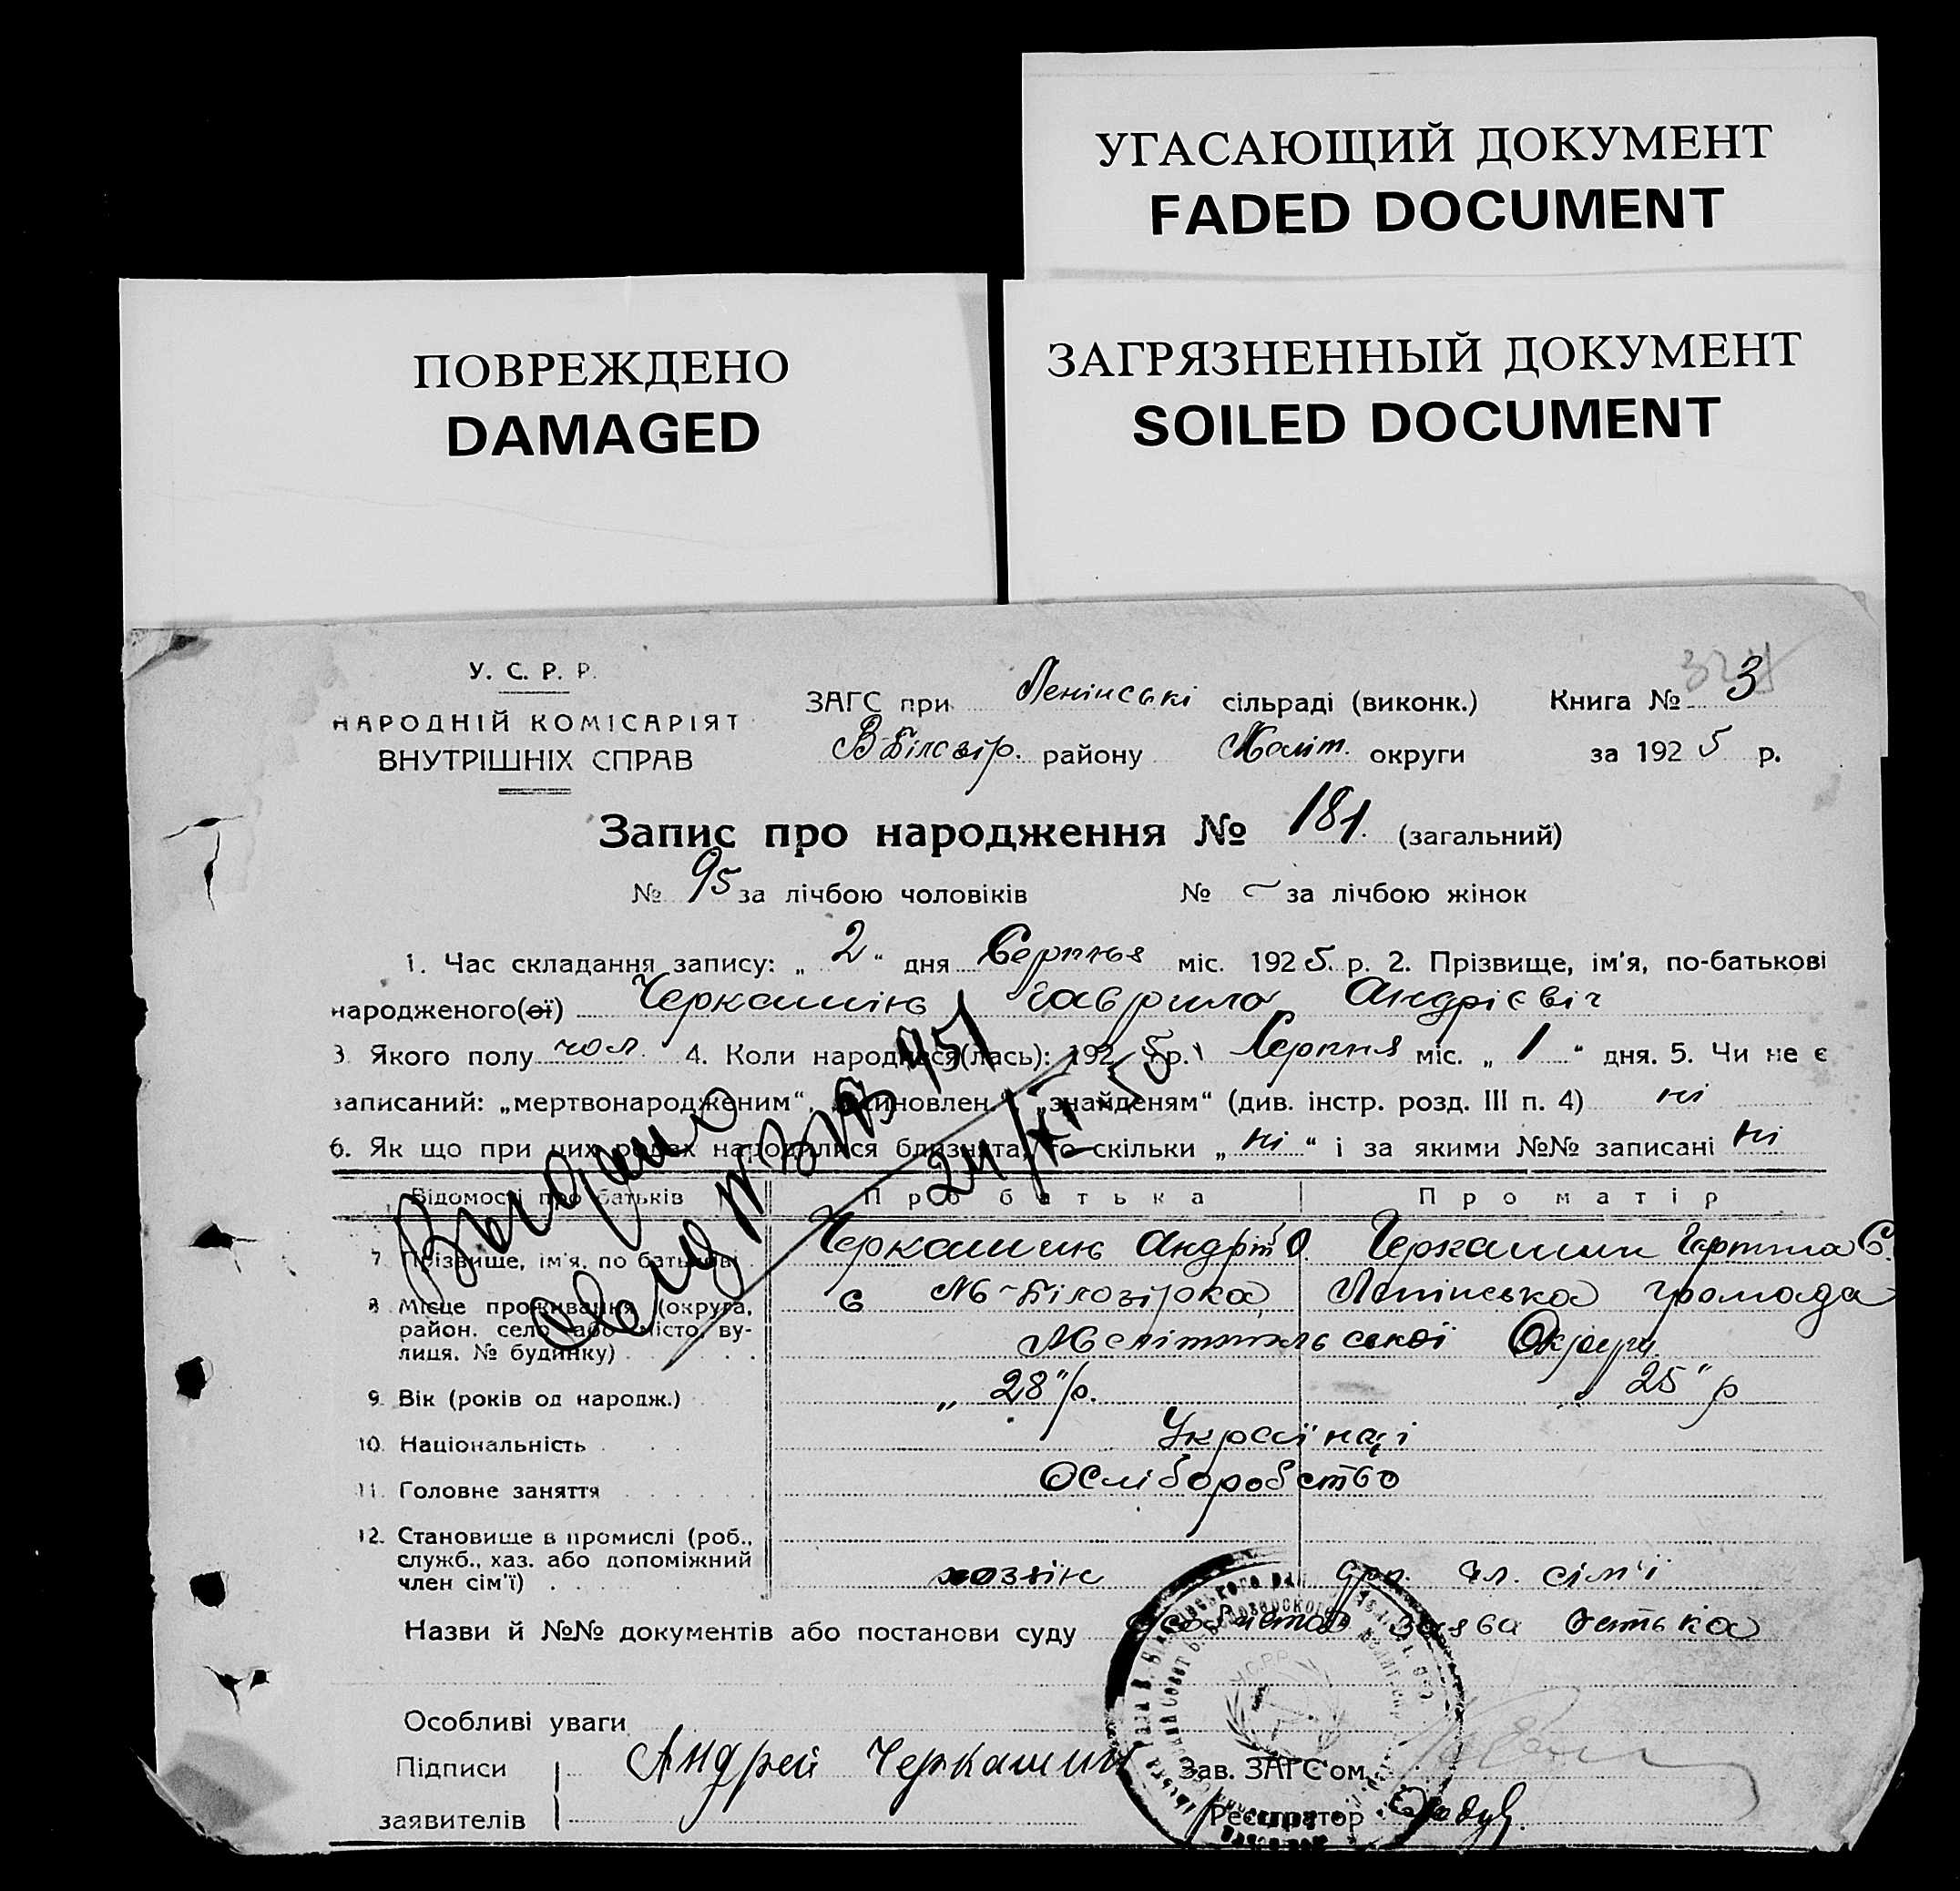 УГАСАЮЩИЙ ДОКУМЕНТ
FADED DOCUMENT
ПОВРЕЖДЕНО
DAMAGED
ЗАГРЯЗНЕННЫЙ ДОКУМЕНТ
SOILED DOCUMENT
У. С. Р. Р.
НАРОДНІЙ КОМІСАРІЯТ
ВНУТРІШНІХ СПРАВ
ЗАГС при Ленінські сільраді (виконк.) Книга № 3
В-Білозір. району Меліт. округи за 1925 р.
Запис про народження № 181. (загальний)
№ 95 за лічбою чоловіків № — за лічбою жінок
1. Час складання запису: „2“ дня Серпня міс. 1925. р. 2. Прізвище, ім'я, по-батькові
народженого(ої) Черкашін Гаврило Андрієвіч
3. Якого полу чол. 4. Коли народився(лась): 1925 р. Серпня міс. „1“ дня. 5. Чи не є
записаний: „мертвонародженим“, „знайденям“ (див. інстр. розд. III п. 4) ні
6. Як що при цих родах народилися близнята, то скільки „ні“ і за якими №№ записані ні
Выдано
24/XI
Відомості про батьків Про батька Про матір
7. Прізвище, ім'я, по батькові Черкашин Андрій О. Черкашин
8. Місце проживання (округа, с Білозірка, Ленінська громада
район, село або місто, ву- Мелітопільської Округи
лиця, № будинку)
9. Вік (років од народж.) „28“ р. „25“ р
10. Національність Українці
11. Головне заняття Хліборобство
12. Становище в промислі (роб.,
служб., хаз. або допоміжний
член сім'ї) хозяїн доп. чл. сім'ї
Назви й №№ документів або постанови суду Особиста заява батька
Особливі уваги
Підписи Андрей Черкашин Зав. ЗАГС'ом
заявителів Реєстратор